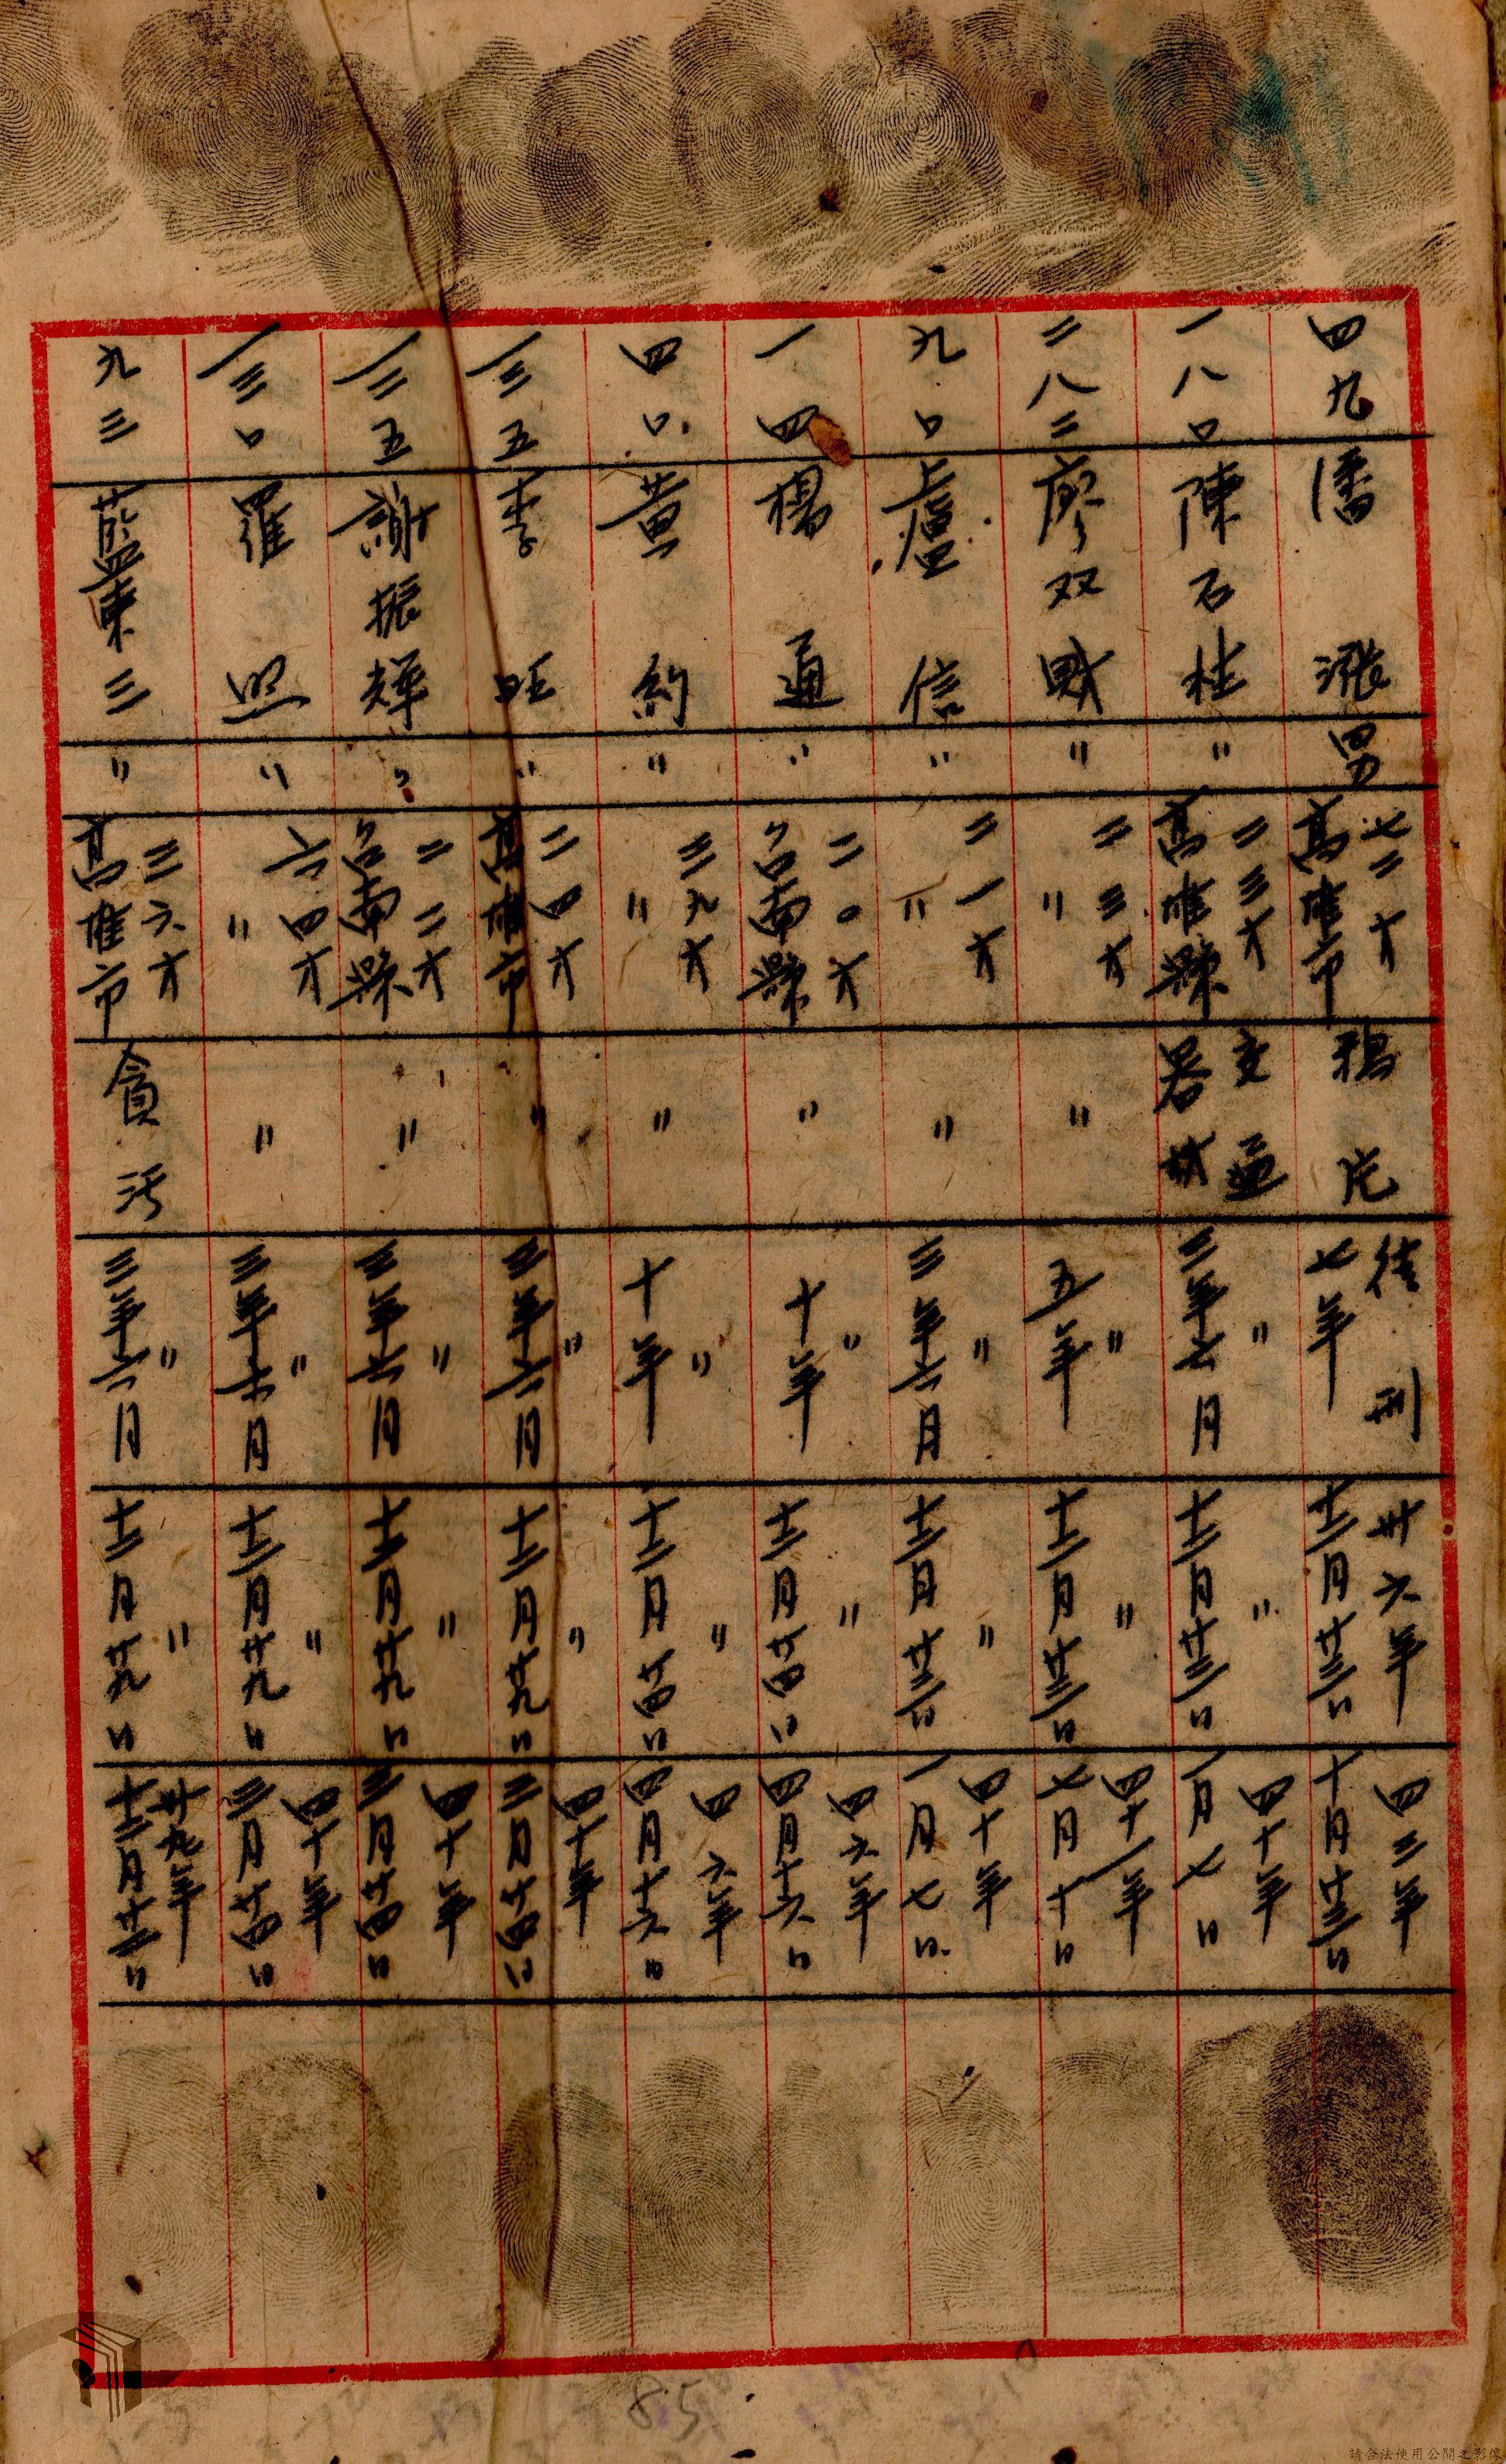 四九 潘漲 男 七二才 高雄市 鴉片 徒刑 七年 卅六年 十二月廿三日 四三年 十月廿三日
一八〇 陳石柱 〃 二三才 高雄縣 交通器材 〃 三年六月 〃 十二月廿三日 四十年 一月七日
二八二 廖双財 〃 二三才 〃 〃 〃 五年 〃 十二月廿三日 四十一年 七月十日
九〇 盧信 〃 二一才 〃 〃 〃 三年六月 〃 十二月廿三日 四十年 一月七日
一四 楊通 〃 二〇才 台南縣 〃 〃 十年 〃 十二月廿四日 四六年 四月十六日
四〇 黃約 〃 三九才 〃 〃 〃 十年 〃 十二月廿四日 四六年 四月十六日
一三五 李旺 〃 二四才 高雄市 〃 〃 三年六月 〃 十二月廿九日 四十年 三月廿四日
一二五 謝振輝 〃 二二才 台南縣 〃 〃 三年六月 〃 十二月廿九日 四十年 三月廿四日
一三〇 羅照 〃 六四才 〃 〃 〃 三年六月 〃 十二月廿九日 四十年 三月廿四日
九三 藍東三 〃 三六才 高雄市 貪污 〃 三年六月 〃 十二月廿九日 卅九年 十二月廿二日
85
請合法使用公開之影像